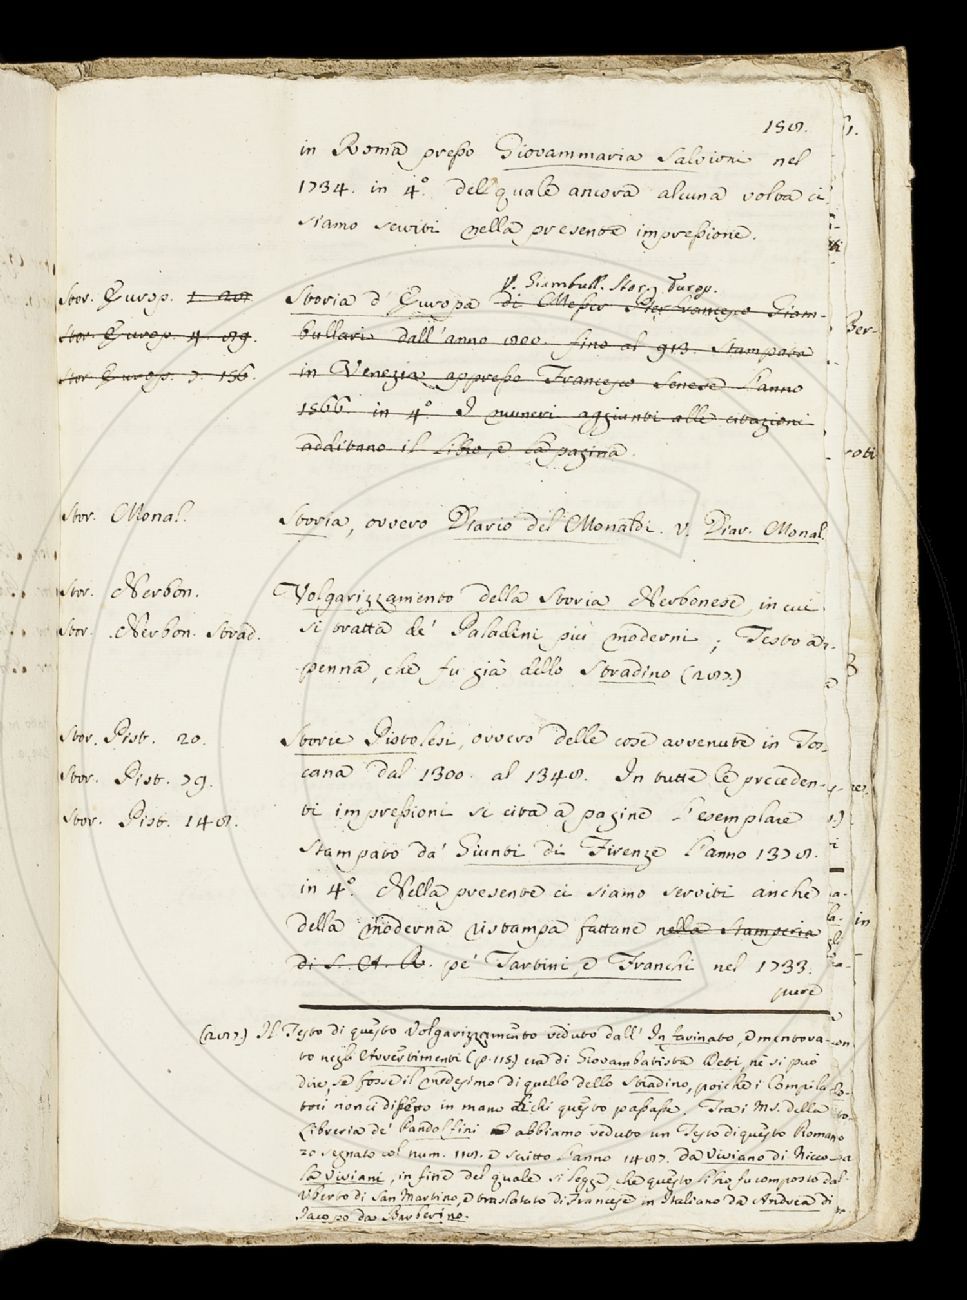 158.
in Roma presso Giovammaria Salvioni nel
1734. in 4°. del quale ancora alcuna volta ci
siamo serviti nella presente impressione.
Stor. Europ. 1. 28.
Stor. Europ. 4. 89.
Stor. Europ. 7. 156.
V. Giambull. Stor. Europ.
Storia d'Europa di Messer Pierfrancesco Giam-
bullari dall'anno 800. fino al 913. Stampata
in Venezia appresso Francesco Senese l'anno
1566. in 4°. I numeri aggiunti alle citazioni
additano il Libro, e la pagina.
Stor. Monal.
Storia, ovvero Diario del Monaldi. V. Diar. Monal.
Stor. Nerbon.
Stor. Nerbon. Strad.
Volgarizzamento della Storia Nerbonese, in cui
si tratta de' Paladini più moderni; Testo a
penna, che fu già dello Stradino (287.)
Stor. Pist. 20.
Stor. Pist. 79.
Stor. Pist. 148.
Storie Pistolesi, ovvero delle cose avvenute in Tos-
cana dal 1300. al 1348. In tutte le preceden-
ti impressioni si cita a pagine l'esemplare
Stampato da' Giunti di Firenze l'anno 1578.
in 4°. Nella presente ci siamo serviti anche
della moderna ristampa fattane nella Stamperia
di S. A. R. pe' Tartini, e Franchi nel 1733.
pure
(287.) Il Testo di questo Volgarizzamento veduto dall'Infarinato, e mentova-
to negli Avvertimenti (p. 115) era di Giovambatista Deti, nè si può
dire, se fosse il medesimo di quello dello Stradino, poichè i Compila-
tori non ci dissero in mano di chi questo passasse. Tra i MS. della
Libreria de' Pandolfini abbiamo veduto un Testo di questo Roman-
zo segnato col num. 118. e scritto l'anno 1487. da Viviano di Nicco-
la Viviani, in fine del quale si legge, che questo libro fu composto dal
Uberto di San Martino, e traslatato di Francese in Italiano da Andrea di
Jacopo da Barberino.